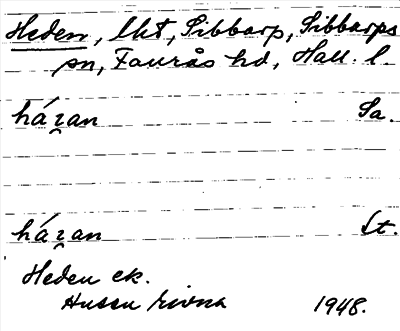 Heden, lht, Sibbarp, Sibbarps
sn, Faurås hd, Hall. l.
háɀ̯an Sa.
háɀ̯an St.
Heden ek.
Husen rivna 1948.